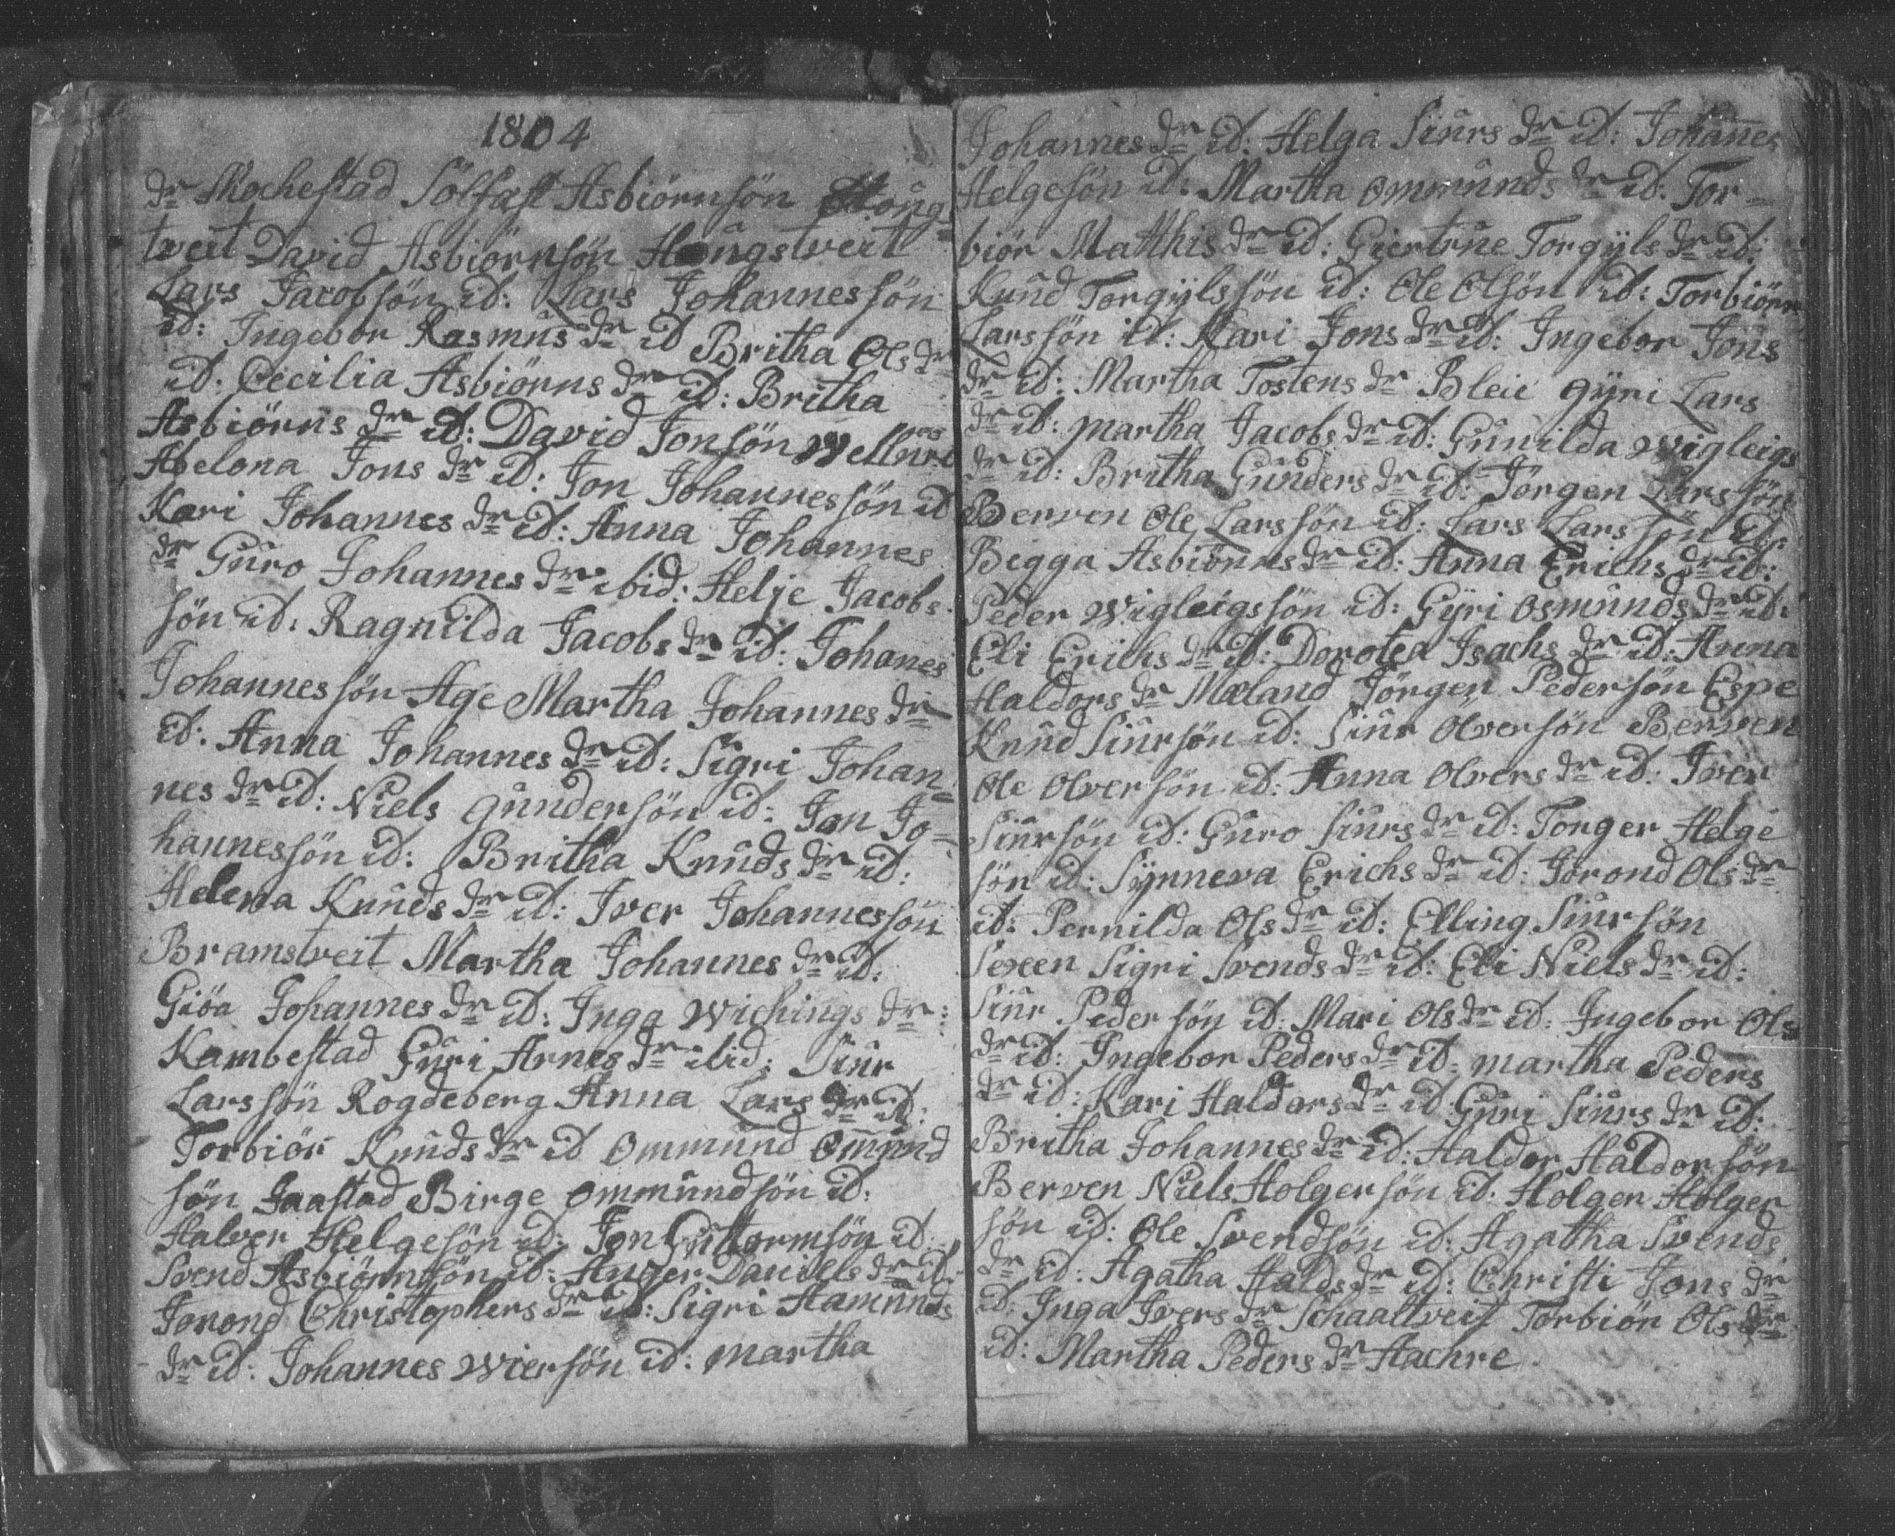 1804
dr Mochestad Sölfast Asbiörnsön Houg-
tveit David Asbiörnsön Hougstveit
Lars Jacobsön id: Lars Johannessön
id: Ingebor Rasmus dr id Britha Ols dr
id: Cecilia Asbiönns dr id: Britha
Asbiörns dr id: David Jonsön
Abelona Jons dr id: Jon Johannessön id
Kari Johannes dr id: Anna Johannes
dr Guro Johannes dr ibid: Helje Jacobs
sön id: Ragnilda Jacobs dr id: Johanes
Johannessön Age Martha Johannes dr
id: Anna Johannes dr id: Sigri Johan-
nes dr id: Niels Gundersön id: Jon Jo-
hannessön id: Britha Knuds dr id:
Helena Knuds dr id: Iver Johannessön
Bramstveit Martha Johannes dr id:
Giöa Johannes dr id: Inga Wichings dr:
Kambestad Guri Arnes dr ibid: Siur
Larssön Rogdeberg Anna Lars dr id:
Torbiör Knuds dr id Ommund Omund
sön Jaastad Birge Ommundsön id:
Halver Helgesön id: Jon Guttormsön id:
Svend Asbiörnsön id: Anger Daniels dr id:
Jorond Christophers dr id: Sigri Hamunds
dr id: Johannes Wiersön id: Martha
Johannes dr id: Helga Siurs dr id: Johannes
Helgesön id: Martha Ommunds dr id: Tor-
biör Matthis dr id: Giertrue Torgÿls dr id:
Knud Torgÿlssön id: Ole Olsön id: Torbiörn
Larssön id: Kari Jons dr id: Ingebor Jons
dr id: Martha Tostens dr Bleie Gÿri Lars
dr id: Martha Jacobs dr id: Gunilda Wigleigs
dr id: Britha Gunders dr id: Jörgen Larssön
Berven Ole Larssön id: Lars Larssön id:
Begga Asbiörns dr id: Anna Erichs dr id:
Peder Wigleigssön id: Gÿri Osmunds dr id:
Eli Erichs dr id: Dorotea Isachs dr id: Anna
Haldors dr Mæland Jörgen Pedersön Espe
Knud Siursön id: Siur Olversön Berven
Ole Olversön id: Anna Olvers dr id: Iver
Siursön id: Guro Siurs dr id: Torger Helge
sön id: Sÿnneva Erichs dr id: Jorond Ols dr
id: Pernilda Ols dr id: Elling Siursön
Sexen Sigri Svends dr id: Eli Niels dr id:
Siur Pedersön id: Mari Ols dr id: Ingebor Ols
dr id: Ingebor Peders dr id: Martha Peders
dr id: Kari Haldors dr id Guri Siurs dr id:
Britha Johannes dr id: Haldor Haldorsön
Berven Niels Holgersön id: Holger Holger
sön id: Ole Svendsön id: Agatha Svends
dr id: Agatha Halds dr id: Christi Jons dr
id: Inga Ivers dr Schaaltveit Torbiör Ols dr
id: Martha Peders dr Hachre